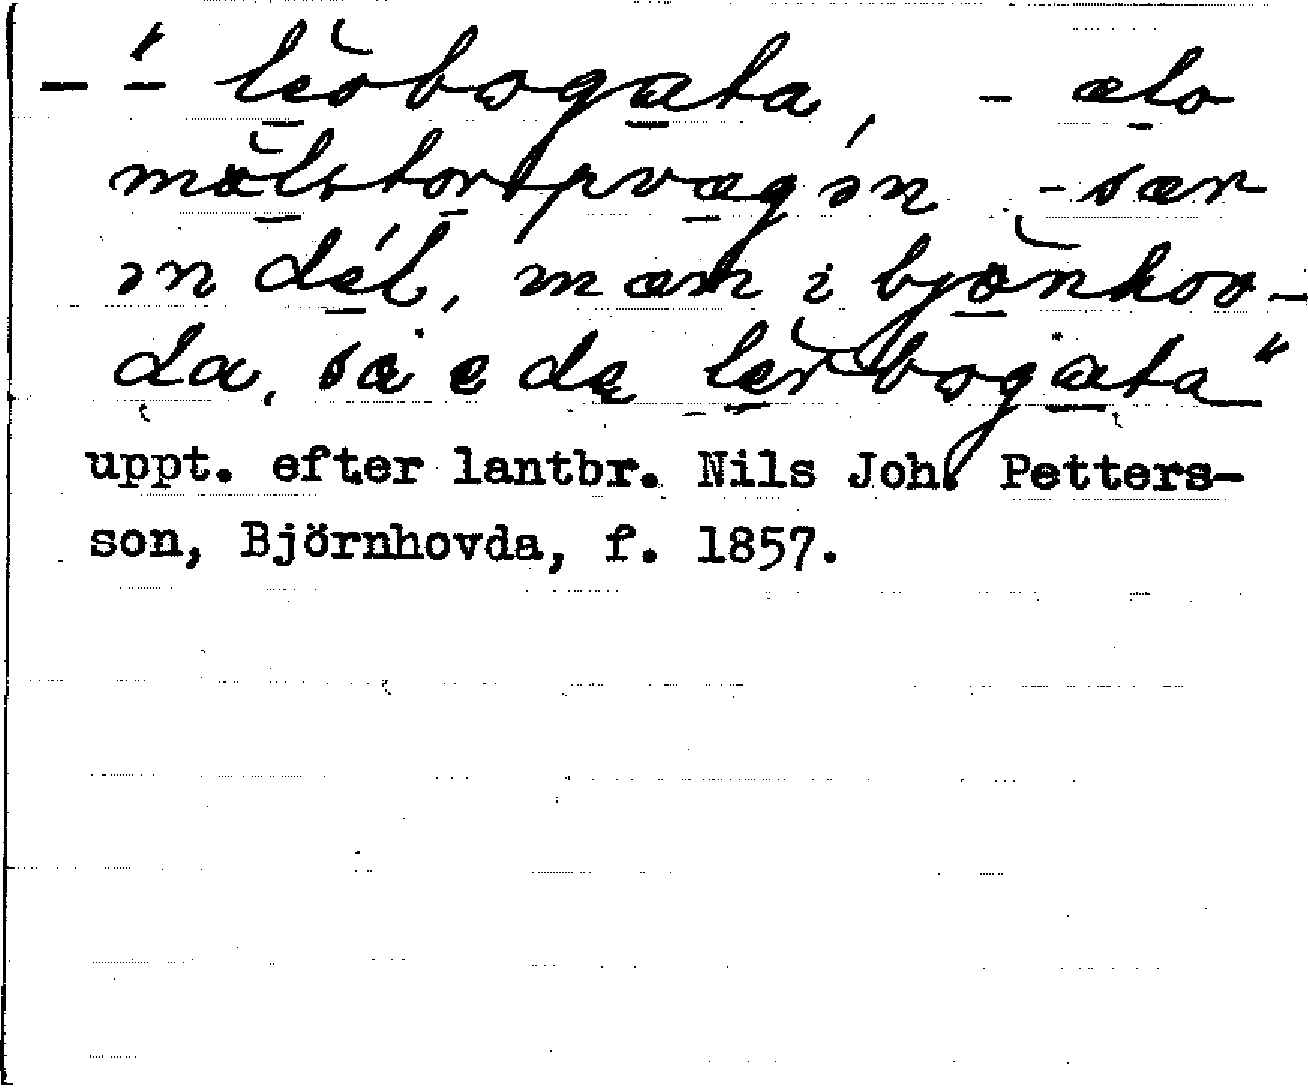 -"- lesbogata, - elo
molstorpvægen - sær
en dél, mæn i bjönhov-
da, sa e de lerbogata"
uppt. efter lantbr. Nils Joh. Petters-
son, Björnhovda, f. 1857.